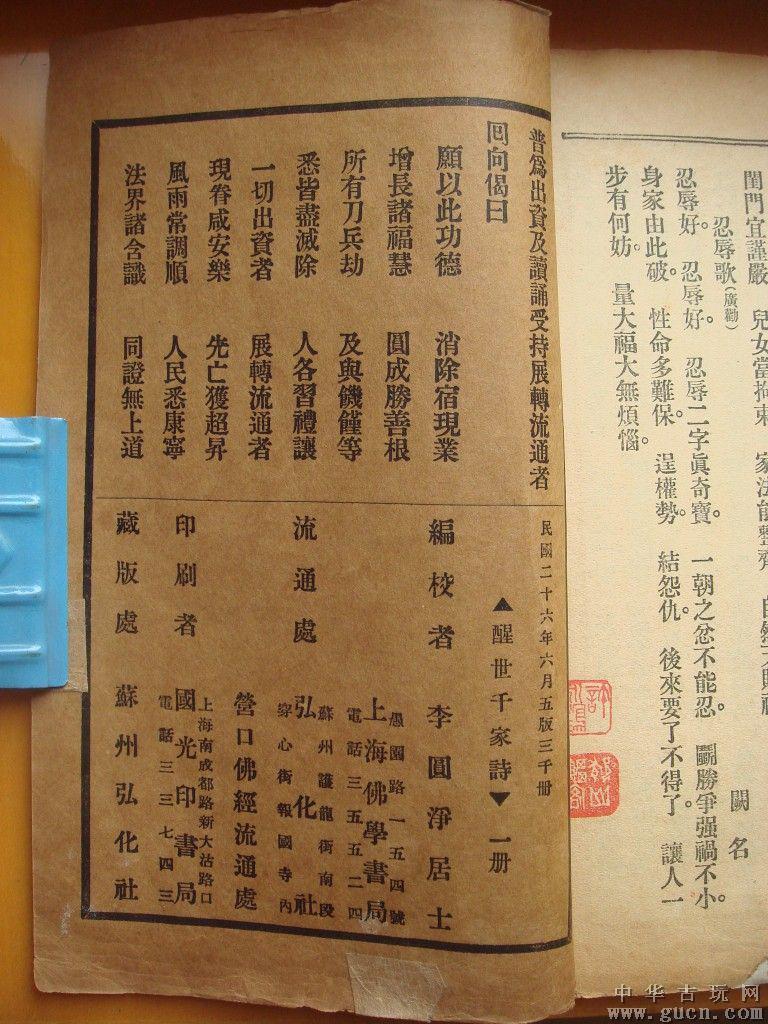 閨門宜謹嚴 兒女當拘束 家法能整齊
忍辱歌(廣勸) 闕名
忍辱好。忍辱好。忍辱二字眞奇寶。一朝之忿不能忍。鬭勝爭强禍不小。
身家由此破。性命多難保。逞權勢。結怨仇。後來要了不得了。讓人一
步有何妨。量大福大無煩惱。
普爲出資及讀誦受持展轉流通者
回向偈曰
願以此功德 消除宿現業
增長諸福慧 圓成勝善根
所有刀兵劫 及與饑饉等
悉皆盡滅除 人各習禮讓
一切出資者 展轉流通者
現眷咸安樂 先亡獲超昇
風雨常調順 人民悉康寧
法界諸含識 同證無上道
民國二十六年六月五版三千册
▲醒世千家詩▼ 一册
編校者 李圓淨居士
流通處
愚園路一五四號
上海佛學書局
電話三五五二四
蘇州護龍街南段
弘化社
穿心街報國寺內
營口佛經流通處
印刷者
上海南成都路新大沽路口
國光印書局
電話三三七四三
藏版處 蘇州弘化社
中华古玩网
www.gucn.com